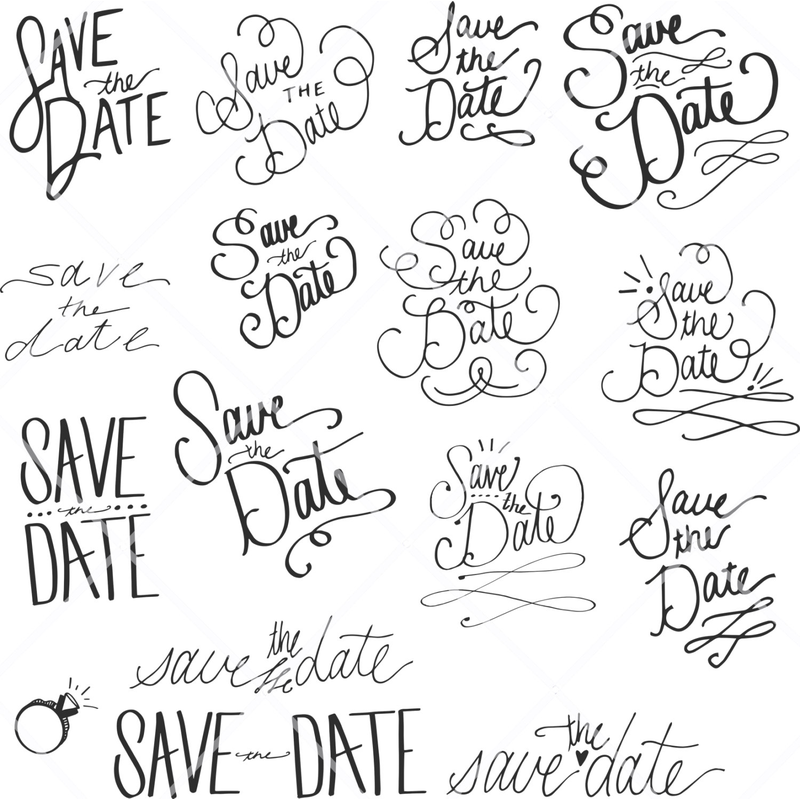 SAVE
the
DATE
Save
THE
Date
Save
the
Date
Save
the
Date
save
the
date
Save
the
Date
Save
the
Date
Save
the
Date
SAVE
the
DATE
Save
the
Date
Save
the
Date
Save
the
Date
save the date
the
SAVE the DATE
save the date